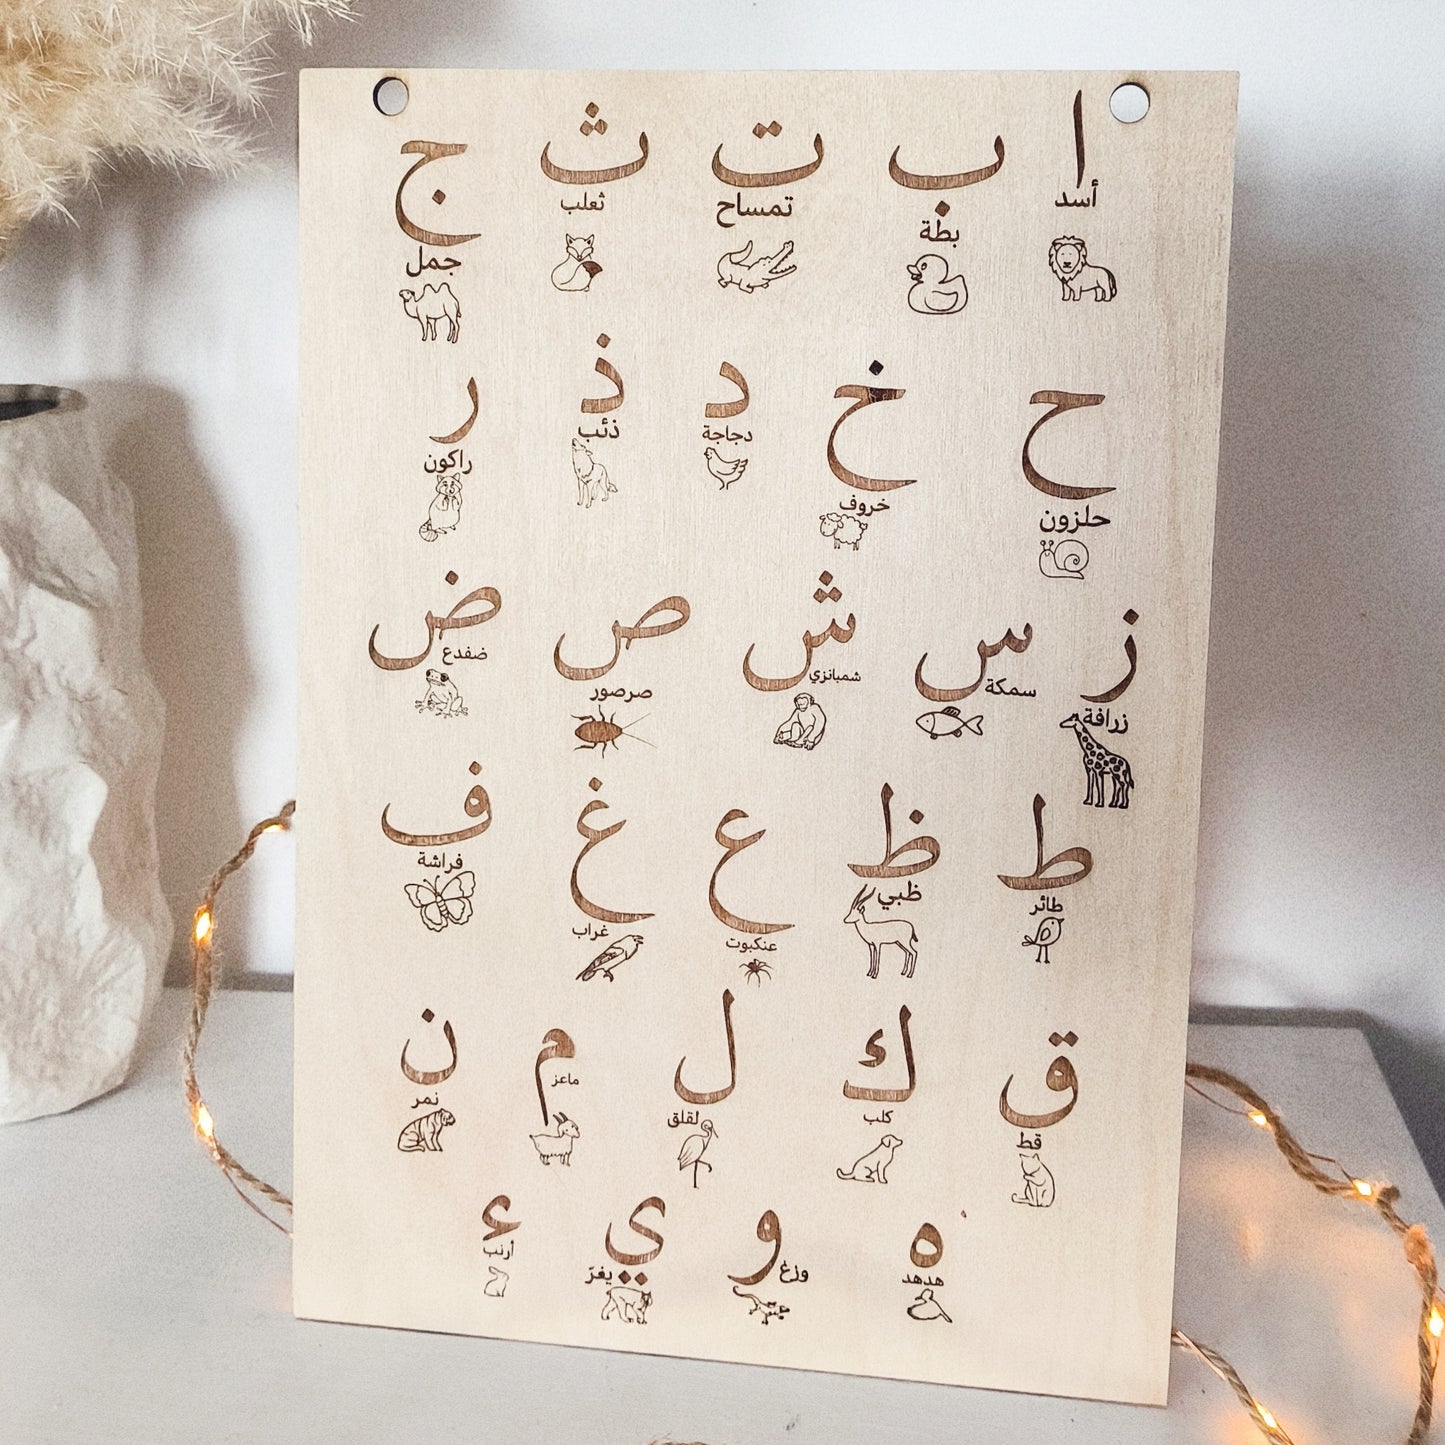 ا ب ت ث ج
أسد بطة تمساح ثعلب جمل
ح خ د ذ ر
حلزون خروف دجاجة ذئب راكون
ز س ش ص ض
زرافة سمكة شمبانزي صرصور ضفدع
ط ظ ع غ ف
طائر ظبي عنكبوت غراب فراشة
ق ك ل م ن
قط كلب لقلق ماعز نمر
ه و ي ء
هدهد وزغ يغرّ أرنب